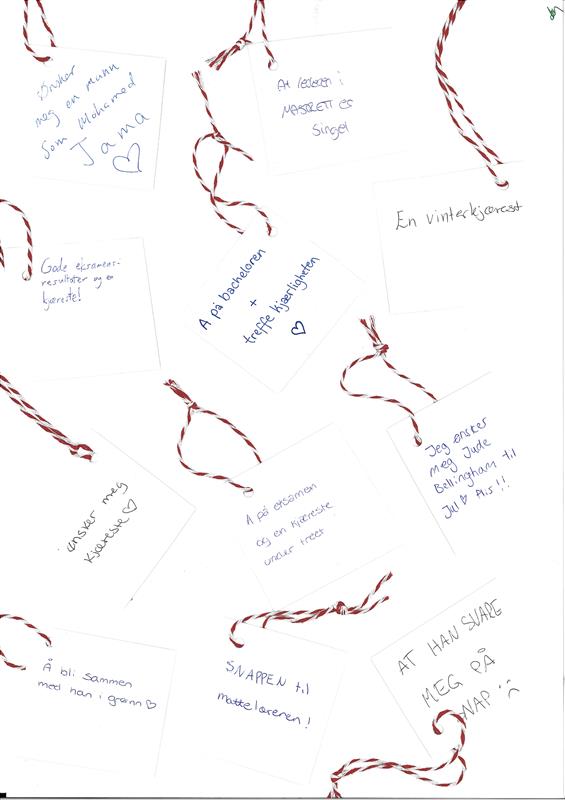 Ønsker
meg en mann
som Mohamed
Jama
At lederen i
MASSRETT er
Singel
En vinterkjæreste
Gode eksamens-
resultater og en
kjæreste!
A på bacheloren
+
treffe kjærligheten
Jeg ønsker
meg Jude
Bellingham til
Jul Pls!!
ønsker meg
kjæreste
A på eksamen
og en kjæreste
under treet
Å bli sammen
med han i grønn
SNAPPEN til
mattelæreren!
AT HAN SVARE
MEG PÅ
SNAP :(